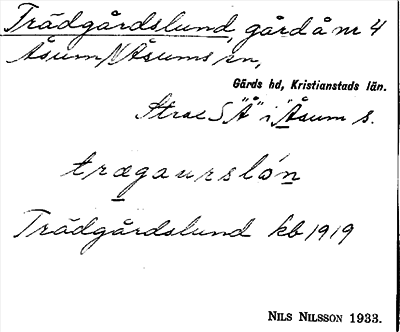 Trädgårdslund, gård å nr 4
Åsum, N Åsums sn,
Gärds hd, Kristianstads län.
Strax S "Å" i Åsum s.
trægaurslón
Trädgårdslund kb 1919
NILS NILSSON 1933.